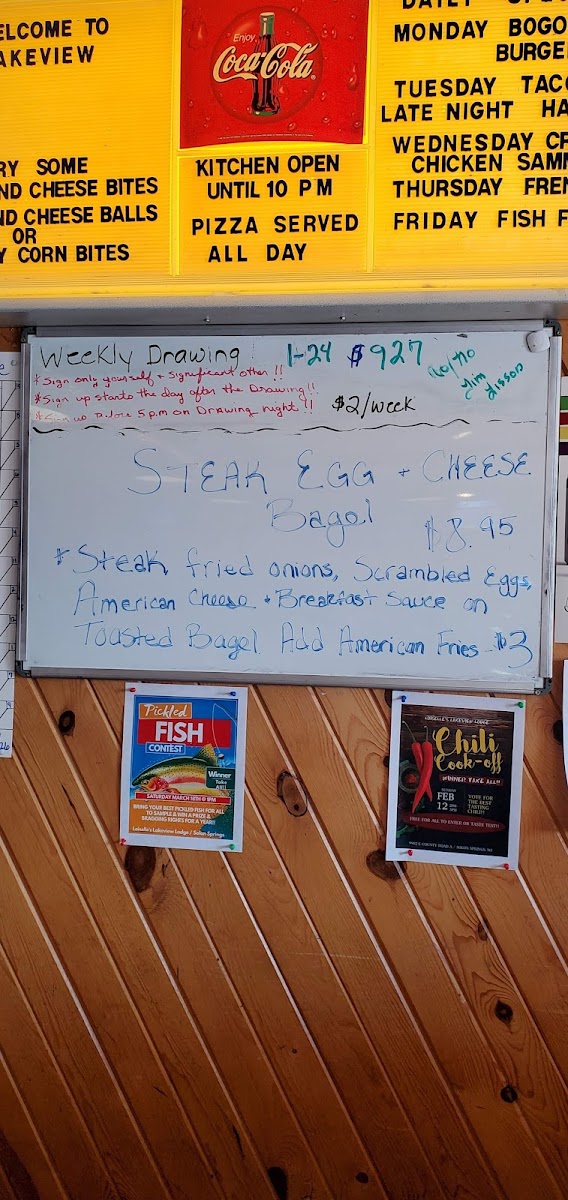 ELCOME TO
AKEVIEW
RY SOME
ND CHEESE BITES
ND CHEESE BALLS
OR
Y CORN BITES
Enjoy
Coca-Cola
KITCHEN OPEN
UNTIL 10 PM
PIZZA SERVED
ALL DAY
DAILY SPEC
MONDAY BOGO
BURGE
TUESDAY TACO
LATE NIGHT HA
WEDNESDAY CR
CHICKEN SAM
THURSDAY FREN
FRIDAY FISH F
Weekly Drawing! 1-24 $927
* Sign only yourself + Significant other!!
* Sign up starts the day after the Drawing!!
5 p.m on Drawing night!!
$2/week
Jim
STEAK EGG + CHEESE
Bagel $8.95
* Steak, fried onions, Scrambled Eggs,
American Cheese + Breakfast Sauce on
Toasted Bagel Add American Fries $3
Pickled
FISH
CONTEST
Winner
Take
All!
SATURDAY MARCH 18TH @ 1PM
BRING YOUR BEST PICKLED FISH FOR ALL
TO SAMPLE & WIN A PRIZE &
BRAGGING RIGHTS FOR A YEAR!!
Lakeview Lodge / Solon Springs
LAKEVIEW LODGE
Chili
Cook-off
WINNER TAKE ALL!!
SUNDAY
FEB
12
VOTE FOR
THE BEST
TASTING
CHILI!
FREE FOR ALL TO ENTER OR TASTE TEST!!